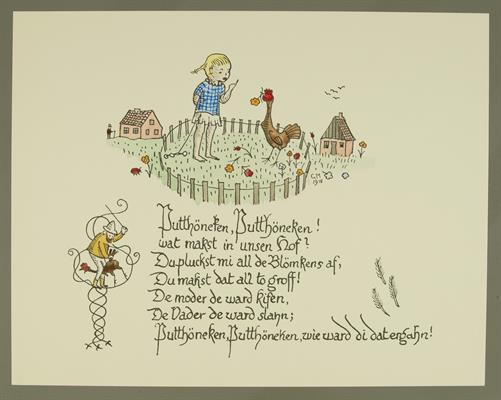 Putthöneken, Putthöneken!
wat makst in unsen Hof?
Du pluckst mi all de Blömkens af,
Du makst dat all to groff!
De moder de ward kifen,
De Vader de ward slahn;
Putthöneken, Putthöneken, wie ward di dat ergahn!